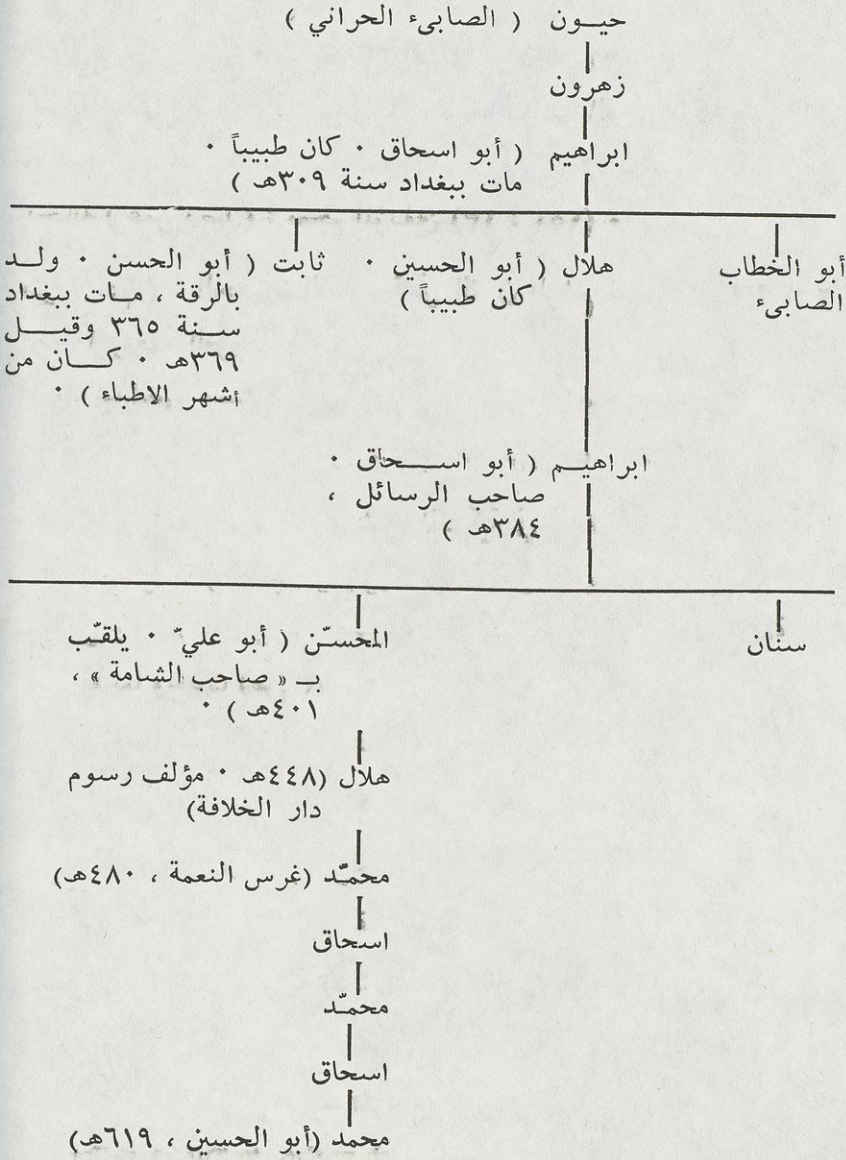 حيـون ( الصابىء الحراني )
زهرون
ابراهيم ( أبو اسحاق ٠ كان طبيباً ٠
مات ببغداد سنة ٣٠٩هـ )
أبو الخطاب
الصابىء
هلال ( أبو الحسين ٠
كان طبيباً )
ثابت ( أبو الحسن ٠ ولـد
بالرقة ، مـات ببغداد
سـنة ٣٦٥ وقيـل
٣٦٩هـ ٠ كـان من
أشهر الاطباء ) ٠
ابراهيـم ( أبو اسـحاق ٠
صاحب الرسائل ،
٣٨٤هـ )
سنان
المحسـّن ( أبو عليّ ٠ يلقـّب
بـ « صاحب الشامة » ،
٤٠١هـ ) ٠
هلال (٤٤٨هـ ٠ مؤلف رسوم
دار الخلافة)
محمـّد (غرس النعمة ، ٤٨٠هـ)
اسحاق
محمـّد
اسحاق
محمد (أبو الحسين ، ٦١٩هـ)